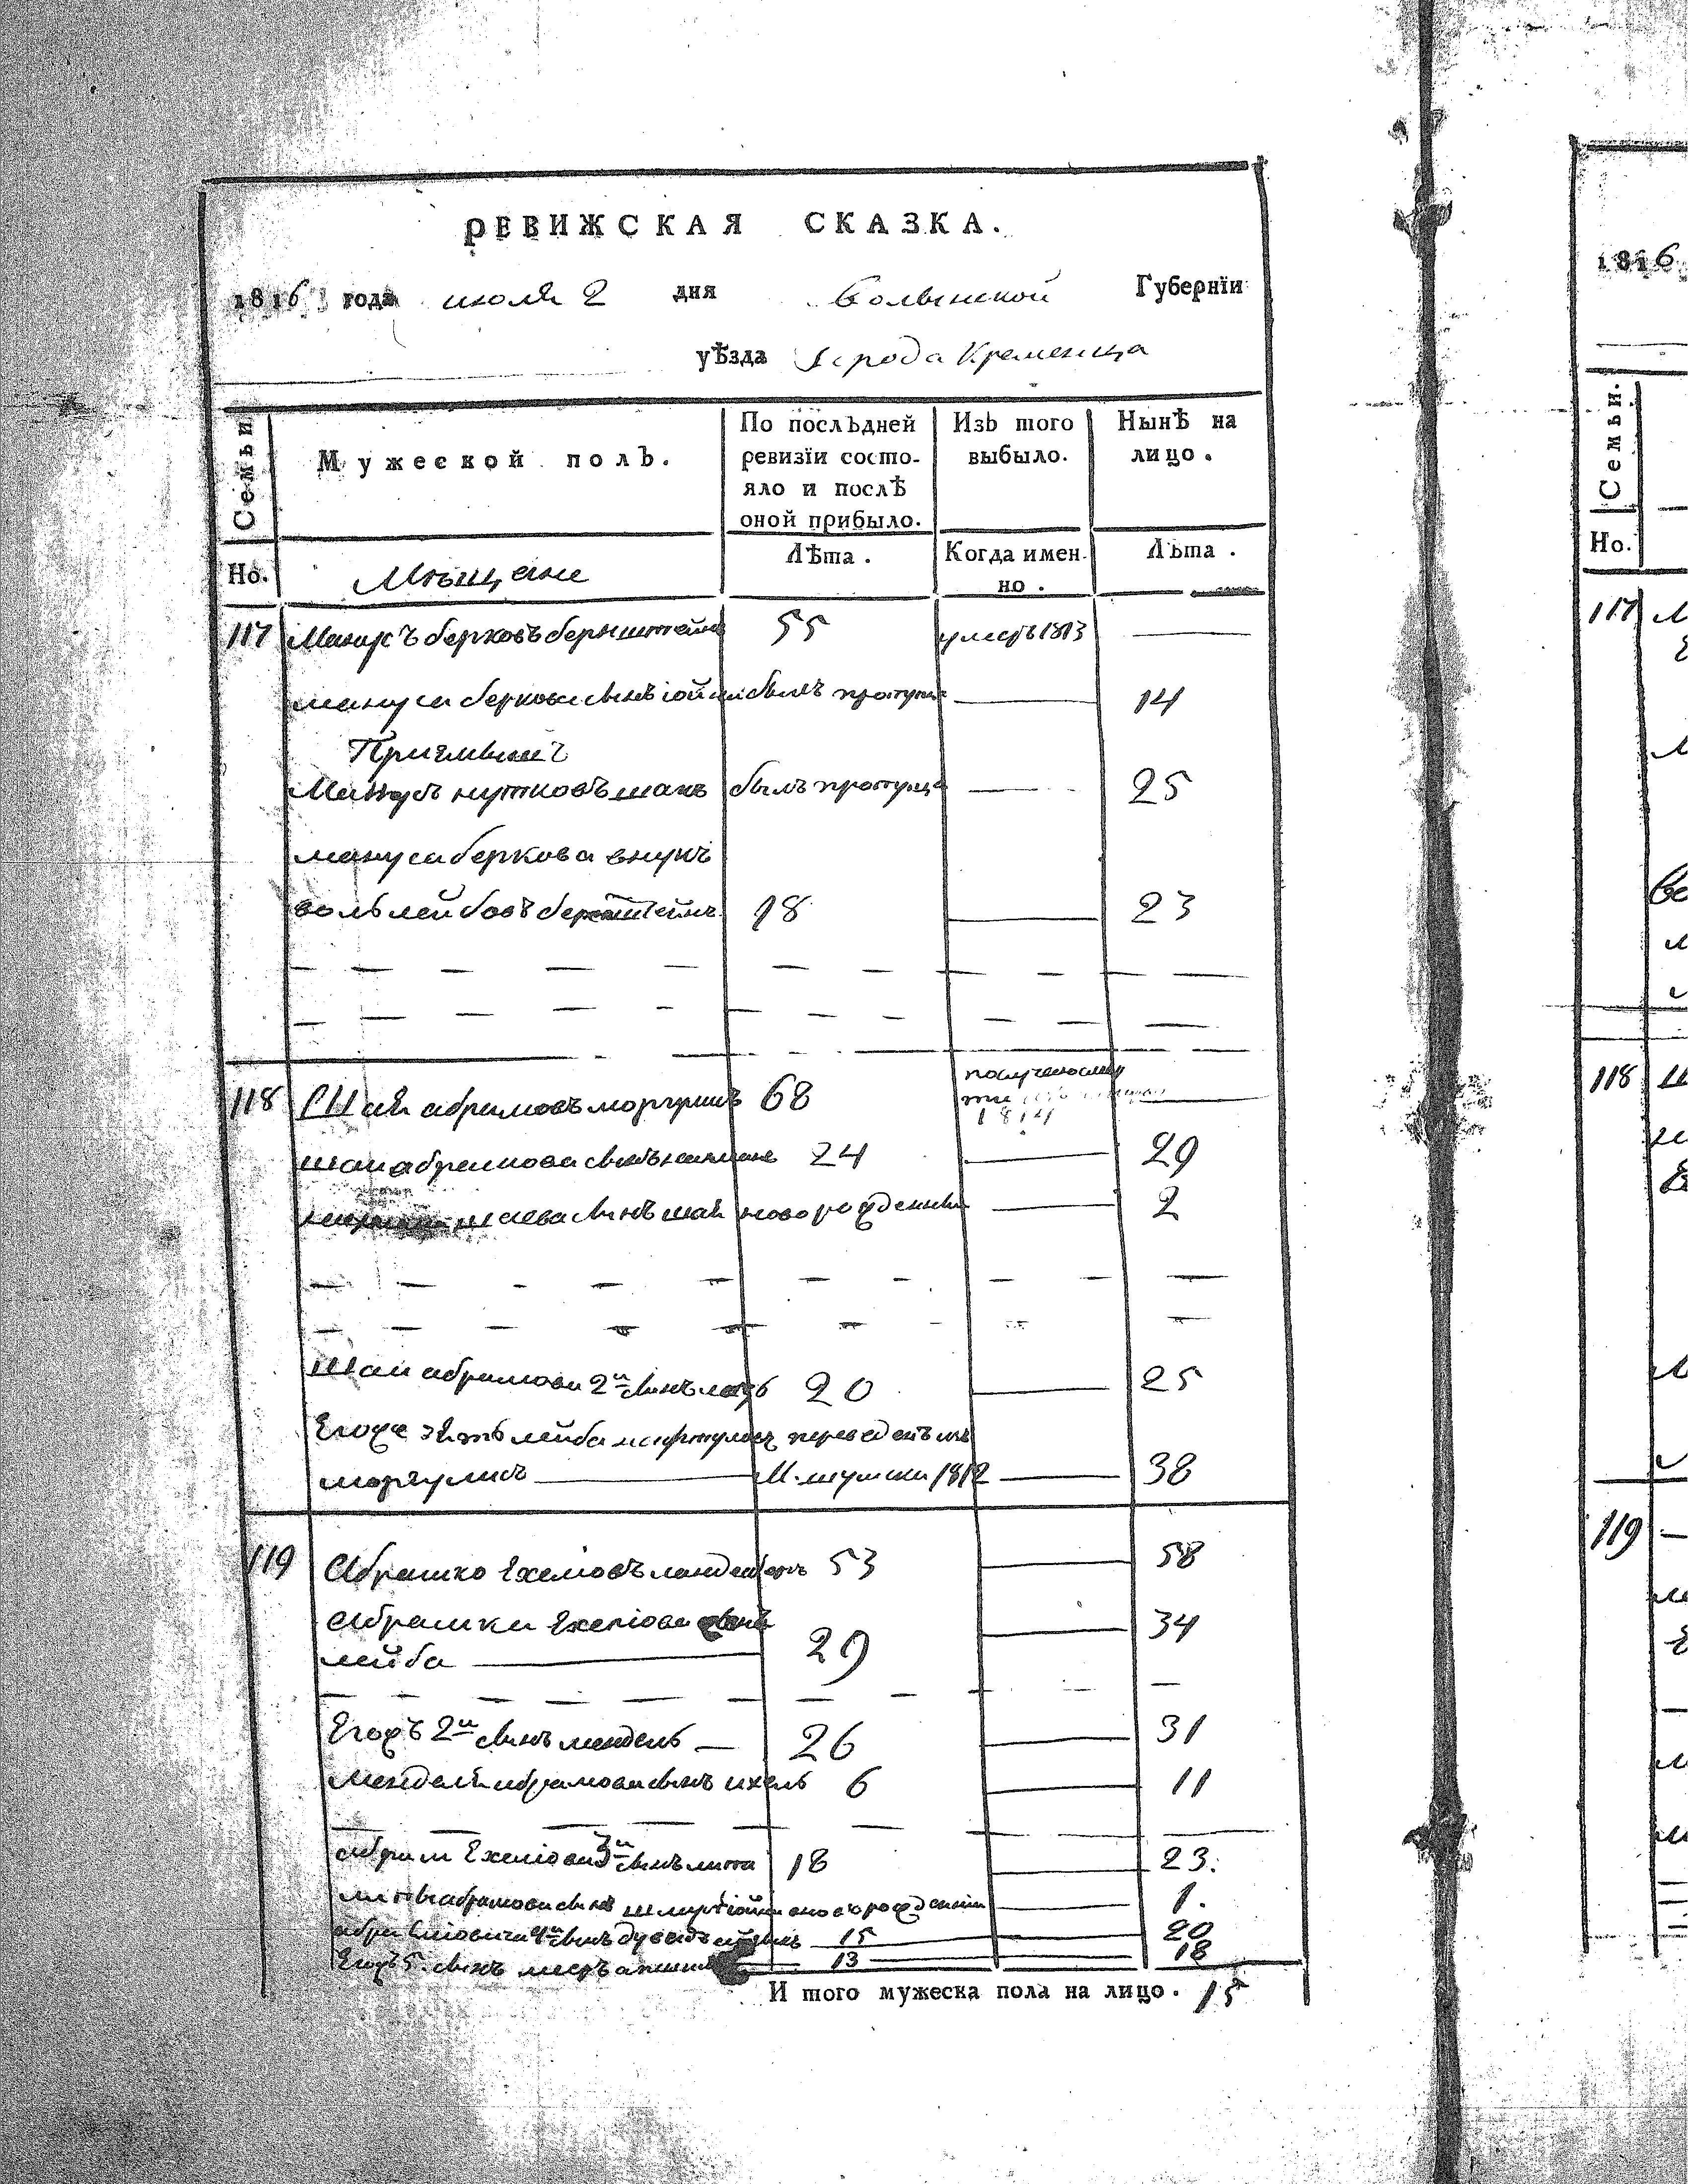 РЕВИЖСКАЯ СКАЗКА.
1816 года июля 2 дня Волынской Губернїи
уѣзда города Кременца
Семьи.
Мужеской полъ.
По послѣдней ревизїи состо-
яло и послѣ
оной прибыло.
Изъ того
выбыло.
Нынѣ на
лицо.
Но.
Мѣщане
Лѣта.
Когда имен-
но.
Лѣта.
117 Манусъ берковъ бернштейнъ 55 умеръ 1813
мануса беркова сынъ іойна былъ пропущ 14
Приемышъ
Манусъ нутковъ былъ пропуще 25
мануса беркова внукъ
воль лейбовъ бернштейнъ 18 23
118 Шая абрамовъ моргулисъ 68
1814
шаи абрамова сынъ 24 29
сынъ шая новорожденный 2
Шаи абрамова 2й сынъ 20 25
Егоже зять лейба переведенъ изъ
моргулисъ М. шумска 1812 38
119 Абрашко Ехелiовъ 53 58
Абрашки Ехелiова сынъ
лейба 29 34
Егожъ 2й сынъ мендель 26 31
Менделя абрамова сынъ ихель 6 11
Абрам Ехелiова 3й сынъ 18 23.
абрамова сынъ новорожденный 1.
4й сынъ 15 20
Егожъ 5. сынъ 13 18
И того мужеска пола на лицо. 15
1816
Семьи.
Но.
117
118
119